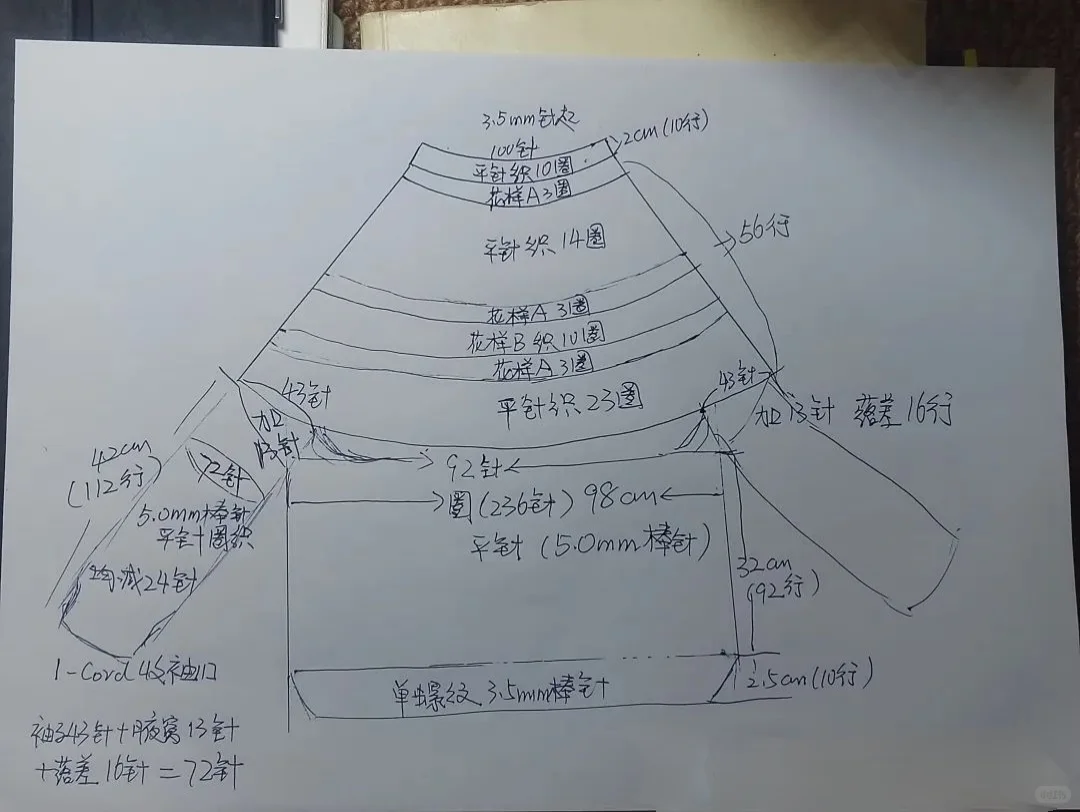 3.5mm针起
100针
2cm(10行)
平针织10圈
花样A3圈
平针织14圈
56行
花样A 3圈
花样B织10圈
花样A 3圈
43针
43针
平针织23圈
加13针 落差16行
加
13针
42cm
(112行)
72针
92针
圈(236针) 98cm
5.0mm棒针
平针圈织
平针(5.0mm棒针)
均减24针
32cm
(92行)
I-Cord 收袖口
单螺纹 3.5mm棒针
2.5cm(10行)
袖子43针+腋窝13针
+落差16针=72针